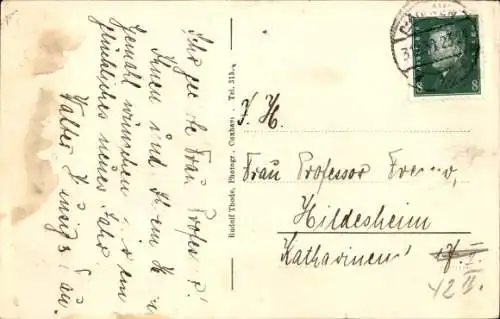 Sehr geehrte Frau Professor!
Ihnen und Ihrem H
Gemahl wünschen wir ein
glückliches neues Jahr
Walter u. Frau.
Rudolf Thode, Photogr. Cuxhaven. Tel. 313
8 8
J. H.
Frau Professor
Hildesheim
Katharinen
42 II.